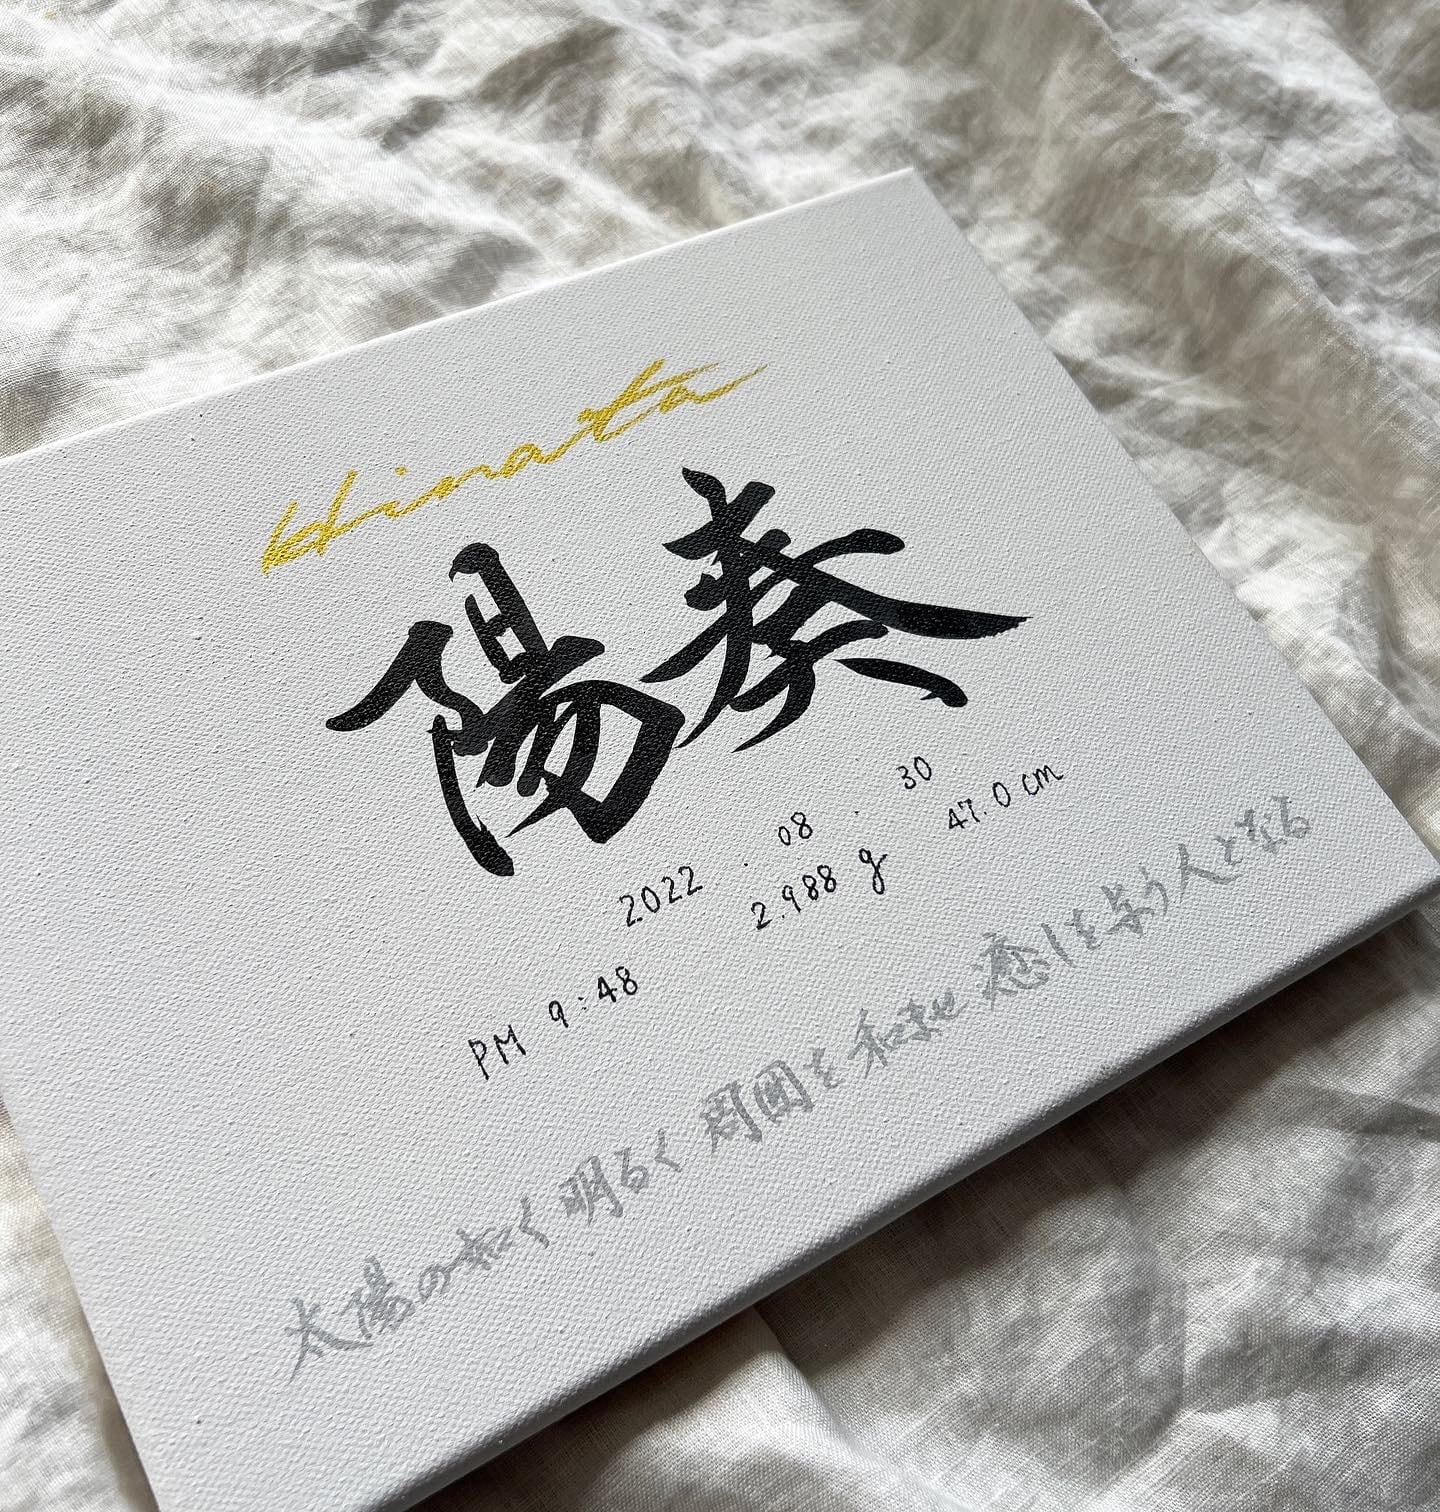 Hinata
陽奏
2022.08.30
PM 9:48 2.988 g 47.0 cm
太陽の如く 明るく 周囲を 和ませ 癒しを与う人となる